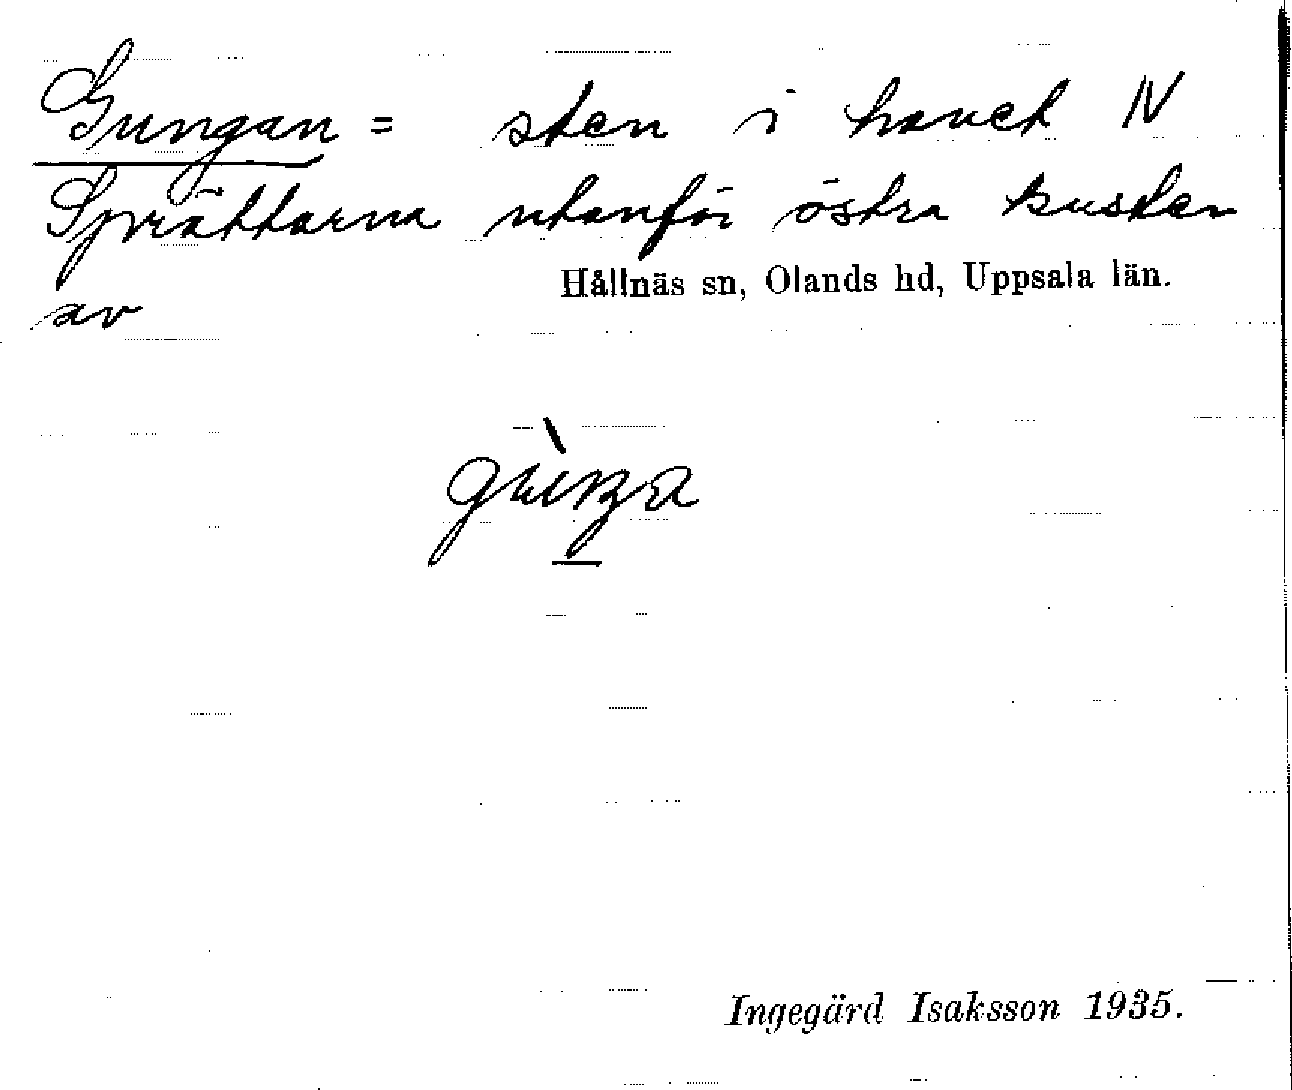 Gungan = sten i havet N
Sprättarna utanför östra kusten
Hållnäs sn, Olands hd, Uppsala län.
av
Ingegärd Isaksson 1935.